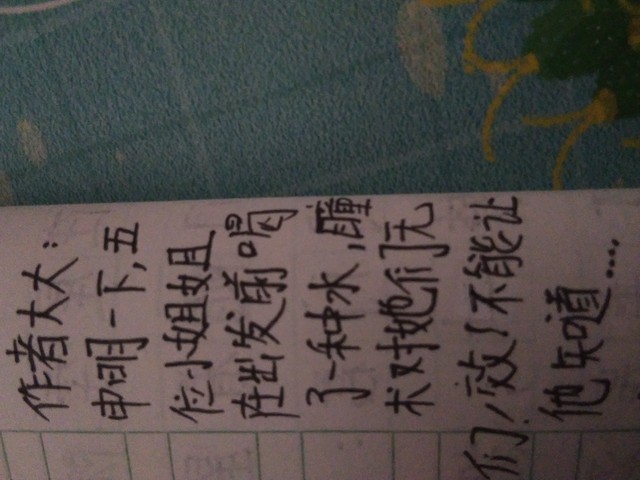 作者大大:
申明一下,五
位小姐姐
在出发前喝
了一种水,瞳
术对她们无
们!效!不能让
他知道....